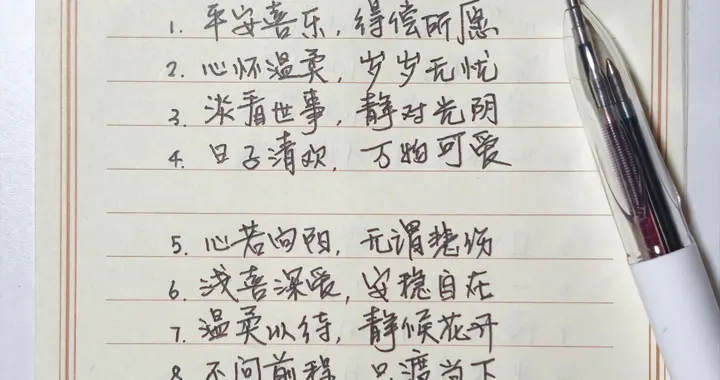 1. 平安喜乐，得偿所愿
2. 心怀温柔，岁岁无忧
3. 淡看世事，静对光阴
4. 日子清欢，万物可爱
5. 心若向阳，无谓悲伤
6. 浅喜深爱，安稳自在
7. 温柔以待，静候花开
8. 不问前程，只渡当下